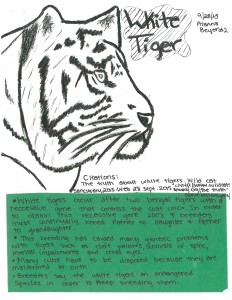 White
Tiger
9/22/15
Citations:
The truth about white tigers, Wild cat
Sanctuary, 2015 Web 23 Sept. 2015
• White tigers occur after two bengal tigers with a
recessive gene that controls the coat color. In order
to obtain this recessive gene zoo's & breeders
must continually breed father to daughter & father
to granddaughter
• This breeding has caused many genetic problems
with tigers such as cleft palates, scoliosis of spine,
mental impairments and cross eyes.
• Many cubs have to be disposed because they are
malformed at birth
• Breeders say the white tigers an endangered
species in order to keep breeding them.